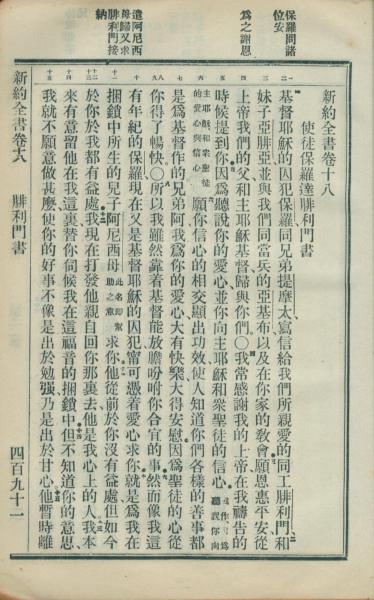 保羅問諸
位安
爲之謝恩
遣阿尼西
母歸又求
腓利門接
納
新約全書卷十八
使徒保羅達腓利門書
基督耶穌的囚犯保羅同兄弟提摩太寫信給我們所親愛的同工腓利門和
妹子亞腓亞並與我們同當兵的亞基布以及在你家的敎會願恩惠平安從
上帝我們的父和主耶穌基督歸與你們○我常感謝我的上帝在我禱告的
時候提到你因爲聽說你的愛心並你向主耶穌和衆聖徒的信心
主耶穌和衆聖徒
的愛心與信心
願你信心的相交顯出功效使人知道你們各樣的善事都
是爲基督作的兄弟阿我爲你的愛心大有快樂大得安慰因爲聖徒的心從
你得了暢快○所以我雖然靠着基督能放膽吩咐你合宜的事然而像我這
有年紀的保羅現在又是基督耶穌的囚犯甯可憑着愛心求你就是爲我在
捆鎖中所生的兒子阿尼西母
此名卽幫
助之意
求你他從前於你沒有益處但如今
於你於我都有益處我現在打發他親自回你那裏去他是我心上的人我本
來有意留他在我這裏替你伺候我在這福音的捆鎖中但不知道你的意思
我就不願意做甚麼使你的好事不像是出於勉強乃是出於甘心他暫時離
新約全書卷十八
腓利門書
四百九十一